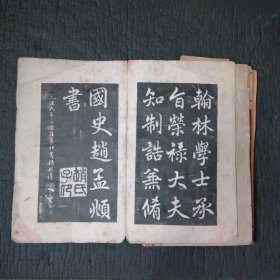 翰林學士承
旨榮禄大夫
知制誥兼脩
國史趙孟頫
書
趙氏子昂